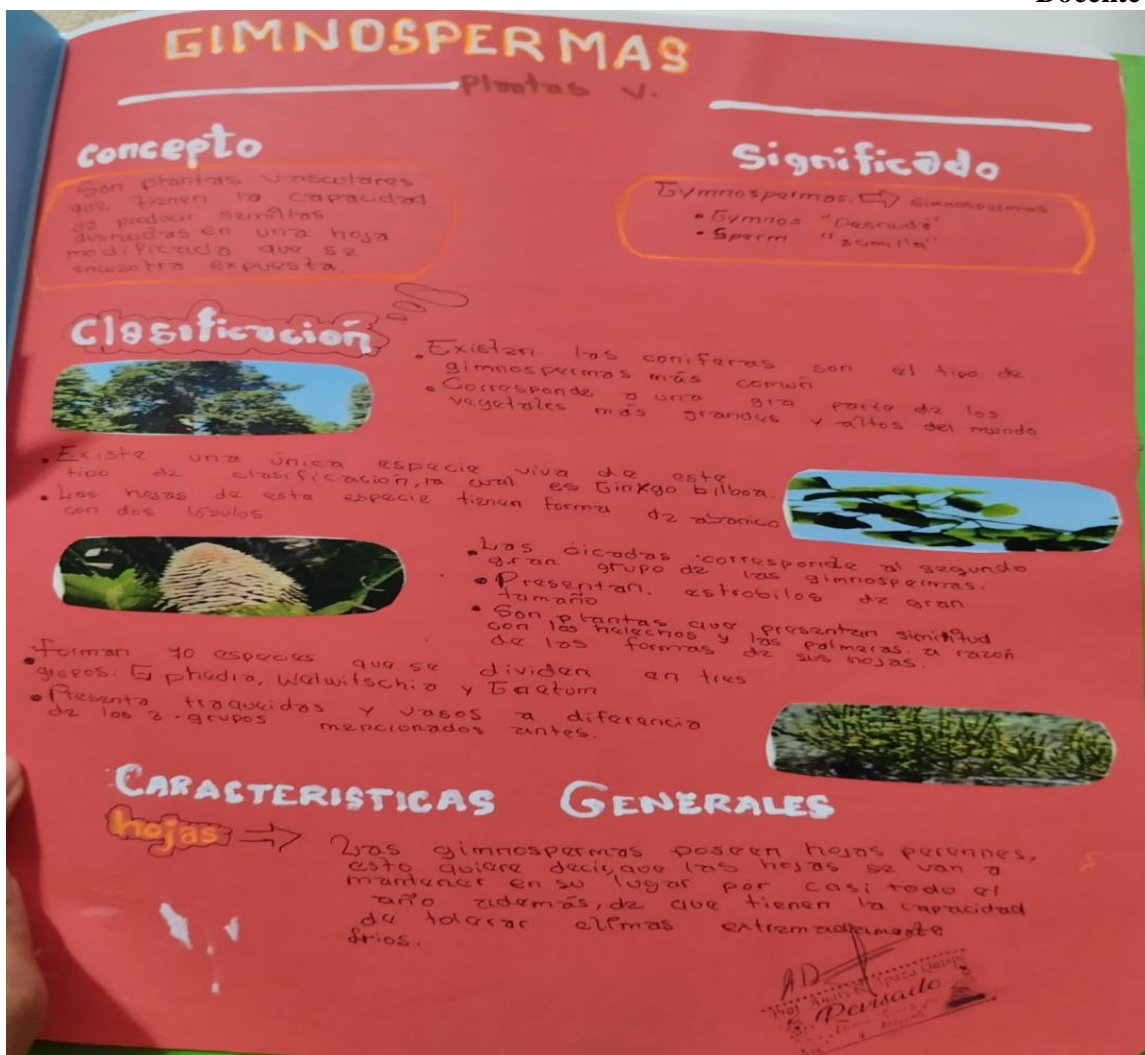 Docente
GIMNOSPERMAS
Plantas V.
concepto
Son plantas vasculares
que tienen la capacidad
de producir semillas
desnudas en una hoja
modificada que se
encuentra expuesta.
Significado
Gymnospermas. ⇨ Gimnospermas
• Gymnos "Desnudo"
• Sperm "semilla"
Clasificación
• Existen las coniferas son el tipo de
gimnospermas más común
• Corresponde a una gra parte de los
vegetales más grandes y altos del mundo.
• Existe una única especie viva de este
tipo de clasificación, la cual es Ginkgo bilboa.
• Los hojas de esta especie tienen forma de abanico
con dos lóbulos
• Las cicadas corresponde al segundo
gran grupo de las gimnospermas.
• Presentan. estrobilos de gran
tamaño
• Son plantas que presentan similitud
con los helechos y las palmeras. a razón
de las formas de sus hojas.
• Forman 70 especies que se dividen en tres
grupos. Ephedra, Welwitschia y Gnetum
• Presenta traqueidas y vasos a diferencia
de los 2. grupos mencionados antes.
CARACTERISTICAS GENERALES
hojas ⇨ Las gimnospermas poseen hojas perennes,
esto quiere decir, que las hojas se van a
mantener en su lugar por casi todo el
año además, de que tienen la capacidad
de tolerar climas extremadamente
frios.
Prof. Apaza Quispe
Revisado